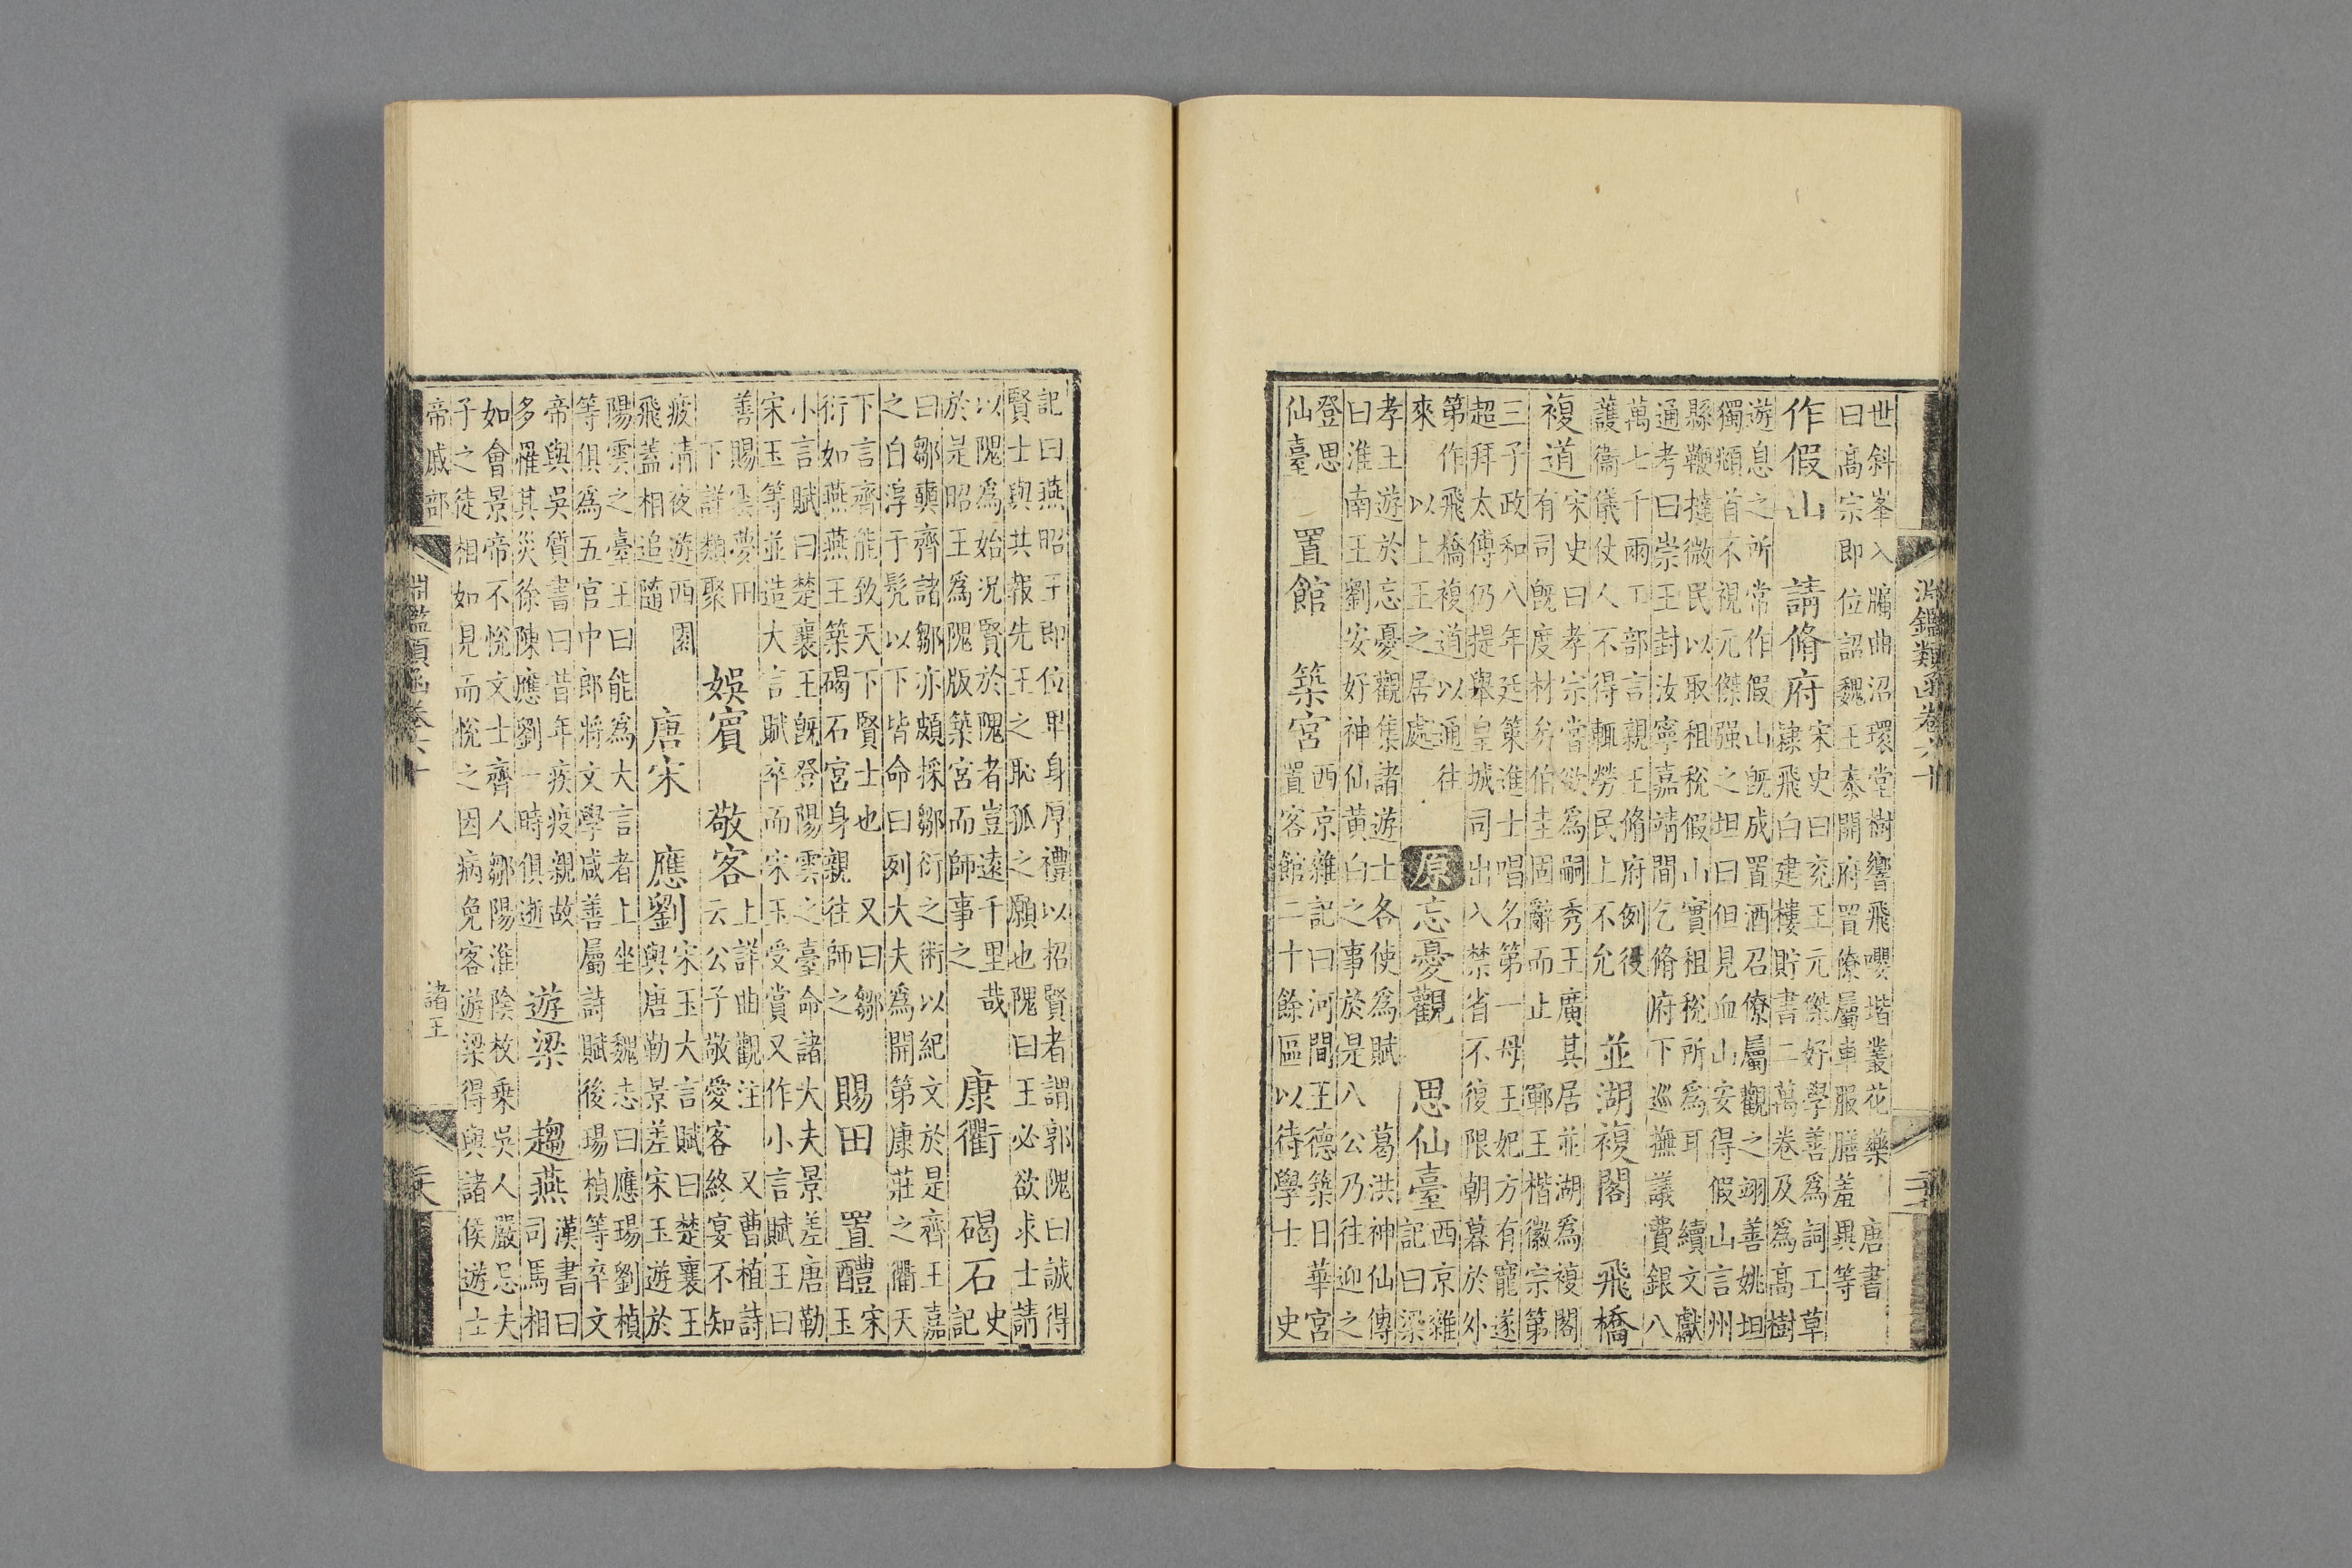 淵鑑類函卷六十
世斜峯入牖曲沼環堂樹響飛嚶堦叢花藥　唐書
曰高宗即位詔魏王泰開府置僚屬車服膳羞異等
作假山　請脩府　宋史曰兗王元傑好學善爲詞工草
隸飛白建樓貯書二萬卷及爲高樹
遊息之所常作假山旣成置酒召僚屬觀之翊善姚坦
獨頫首不視元傑强之坦曰但見血山安得假山言州
縣鞭撻微民以取租稅假山實租稅所爲耳　續文獻
通考曰崇王封汝寧嘉靖間乞脩府下巡撫議費銀八
萬七千兩工部言親王脩府例役
護衞儀仗人不得輒勞民上不允　並湖複閣　飛橋
複道　宋史曰孝宗嘗欲爲嗣秀王廣其居並湖爲複閣
有司旣度材矣伯圭固辭而止　鄆王楷徽宗第
三子政和八年廷策進士唱名第一母王妃方有寵遂
超拜太傅仍提舉皇城司出入禁省不復限朝暮於外
第作飛橋複道以通往
來　以上王之居處　原　忘憂觀　思仙臺　西京雜
記曰梁
孝王遊於忘憂觀集諸遊士各使爲賦　葛洪神仙傳
曰淮南王劉安好神仙黃白之事於是八公乃往迎之
登思
仙臺　置館　築宮　西京雜記曰河間王德築日華宮
置客館二十餘區以待學士　史
記曰燕昭王即位卑身厚禮以招賢者謂郭隗曰誠得
賢士與共報先王之恥孤之願也隗曰王必欲求士請
以隗爲始況賢於隗者豈遠千里哉
於是昭王爲隗版築宮而師事之　康衢　碣石　史
記
曰鄒奭齊諸鄒亦頗採鄒衍之術以紀文於是齊王嘉
之自淳于髡以下皆命曰列大夫爲開第康莊之衢天
下言齊能致天下賢士也　又曰鄒
衍如燕燕王築碣石宮身親往師之　賜田　置醴　宋
玉
小言賦曰楚襄王旣登陽雲之臺命諸大夫景差唐勒
宋玉等並造大言賦卒而宋玉受賞又作小言賦王曰
善賜雲夢田
下詳類聚　娛賓　敬客　上詳曲觀注　又曹植詩
云公子敬愛客終宴不知
疲清夜遊西園
飛蓋相追隨　唐宋　應劉　宋玉大言賦曰楚襄王
與唐勒景差宋玉遊於
陽雲之臺王曰能爲大言者上坐　魏志曰應瑒劉楨
等俱爲五官中郎將文學咸善屬詩賦後瑒楨等卒文
帝與吳質書曰昔年疾疫親故
多罹其災徐陳應劉一時俱逝　遊梁　趨燕　漢書曰
司馬相
如會景帝不悅文士齊人鄒陽淮陰枚乗吳人嚴忌夫
子之徒相如見而悅之因病免客遊梁得與諸侯遊士
帝戚部
淵鑑類函卷六十
諸王